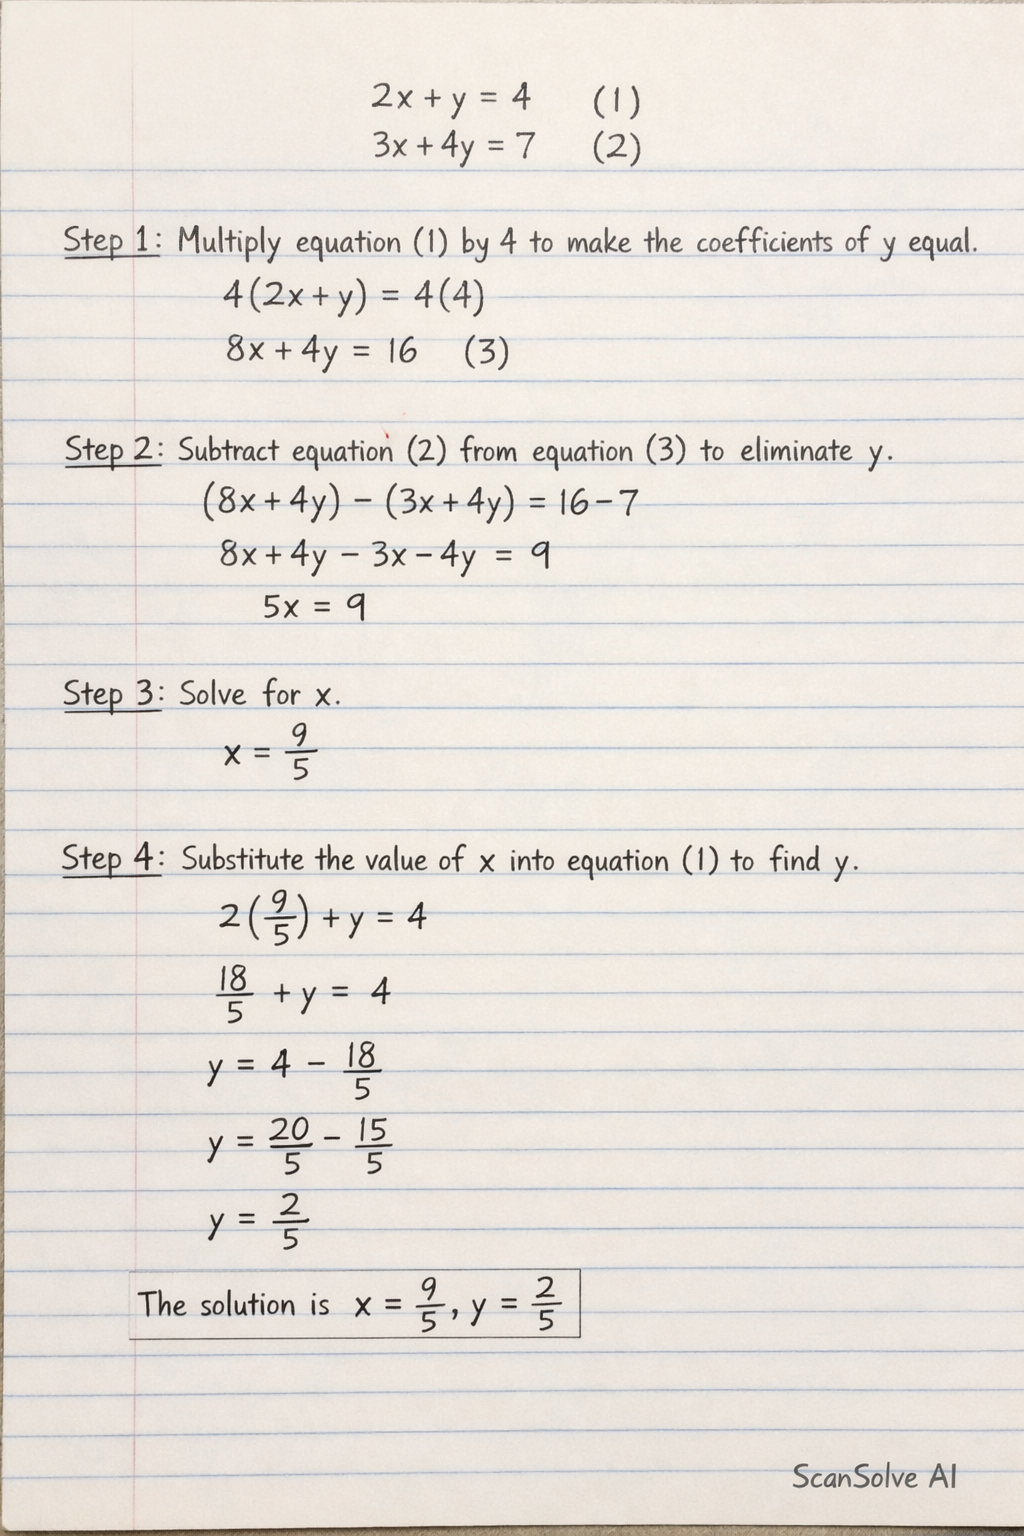 2x + y = 4 (1)
3x + 4y = 7 (2)
Step 1: Multiply equation (1) by 4 to make the coefficients of y equal.
4(2x + y) = 4(4)
8x + 4y = 16 (3)
Step 2: Subtract equation (2) from equation (3) to eliminate y.
(8x + 4y) − (3x + 4y) = 16 − 7
8x + 4y − 3x − 4y = 9
5x = 9
Step 3: Solve for x.
x = 9/5
Step 4: Substitute the value of x into equation (1) to find y.
2(9/5) + y = 4
18/5 + y = 4
y = 4 − 18/5
y = 20/5 − 15/5
y = 2/5
The solution is x = 9/5, y = 2/5
ScanSolve AI